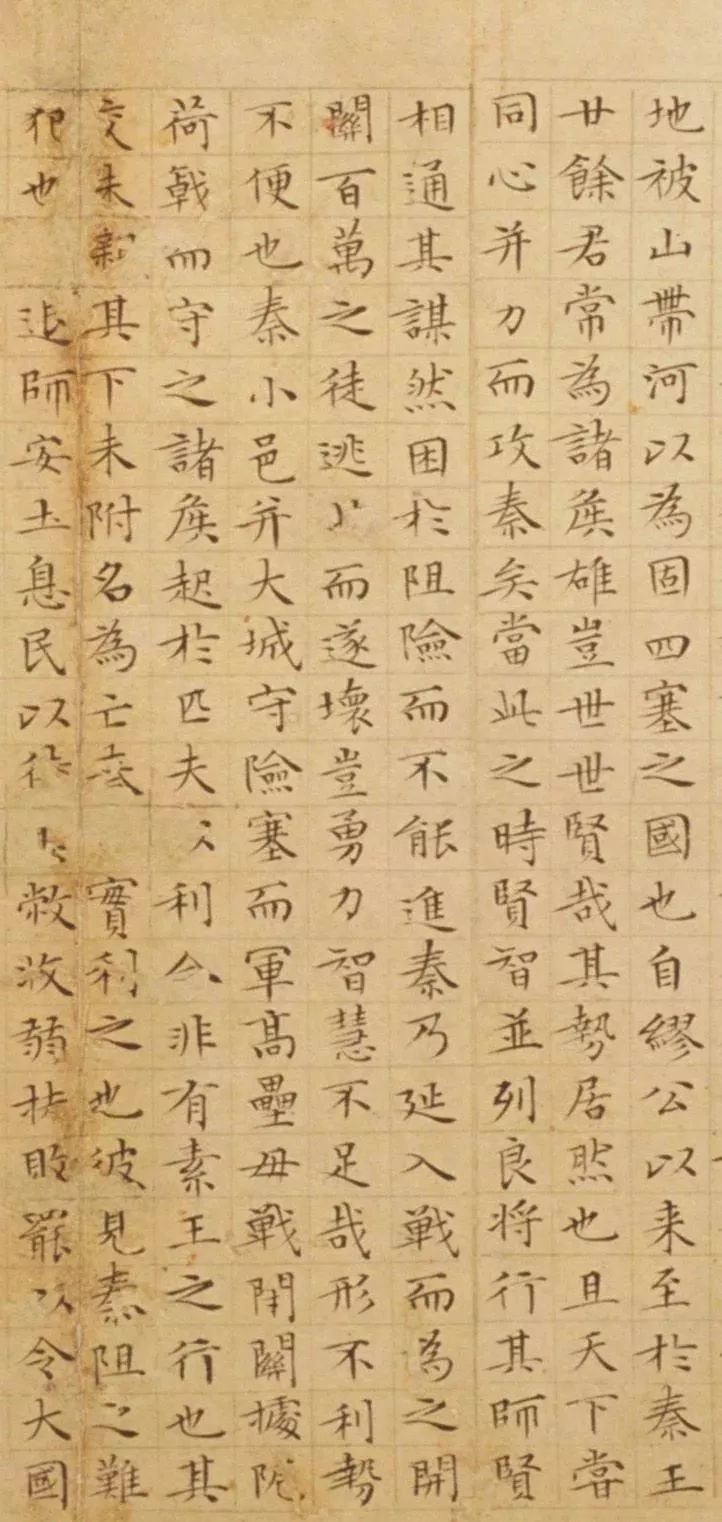 地被山帶河以為固四塞之國也自繆公以来至於秦王
廿餘君常為諸侯雄豈世世賢哉其勢居然也且天下甞
同心并力而攻秦矣當此之時賢智並列良将行其師賢
相通其謀然困於阻險而不能進秦乃延入戰而為之開
關百萬之徒逃而遂壞豈勇力智慧不足哉形不利勢
不便也秦小邑并大城守險塞而軍高壘毋戰閇關據阨
荷戟而守之諸侯起於匹夫利合非有素王之行也其
交未親其下未附名為亡秦實利之也彼見秦阻之難
犯也退師安土息民以待敝收弱扶罷以令大國